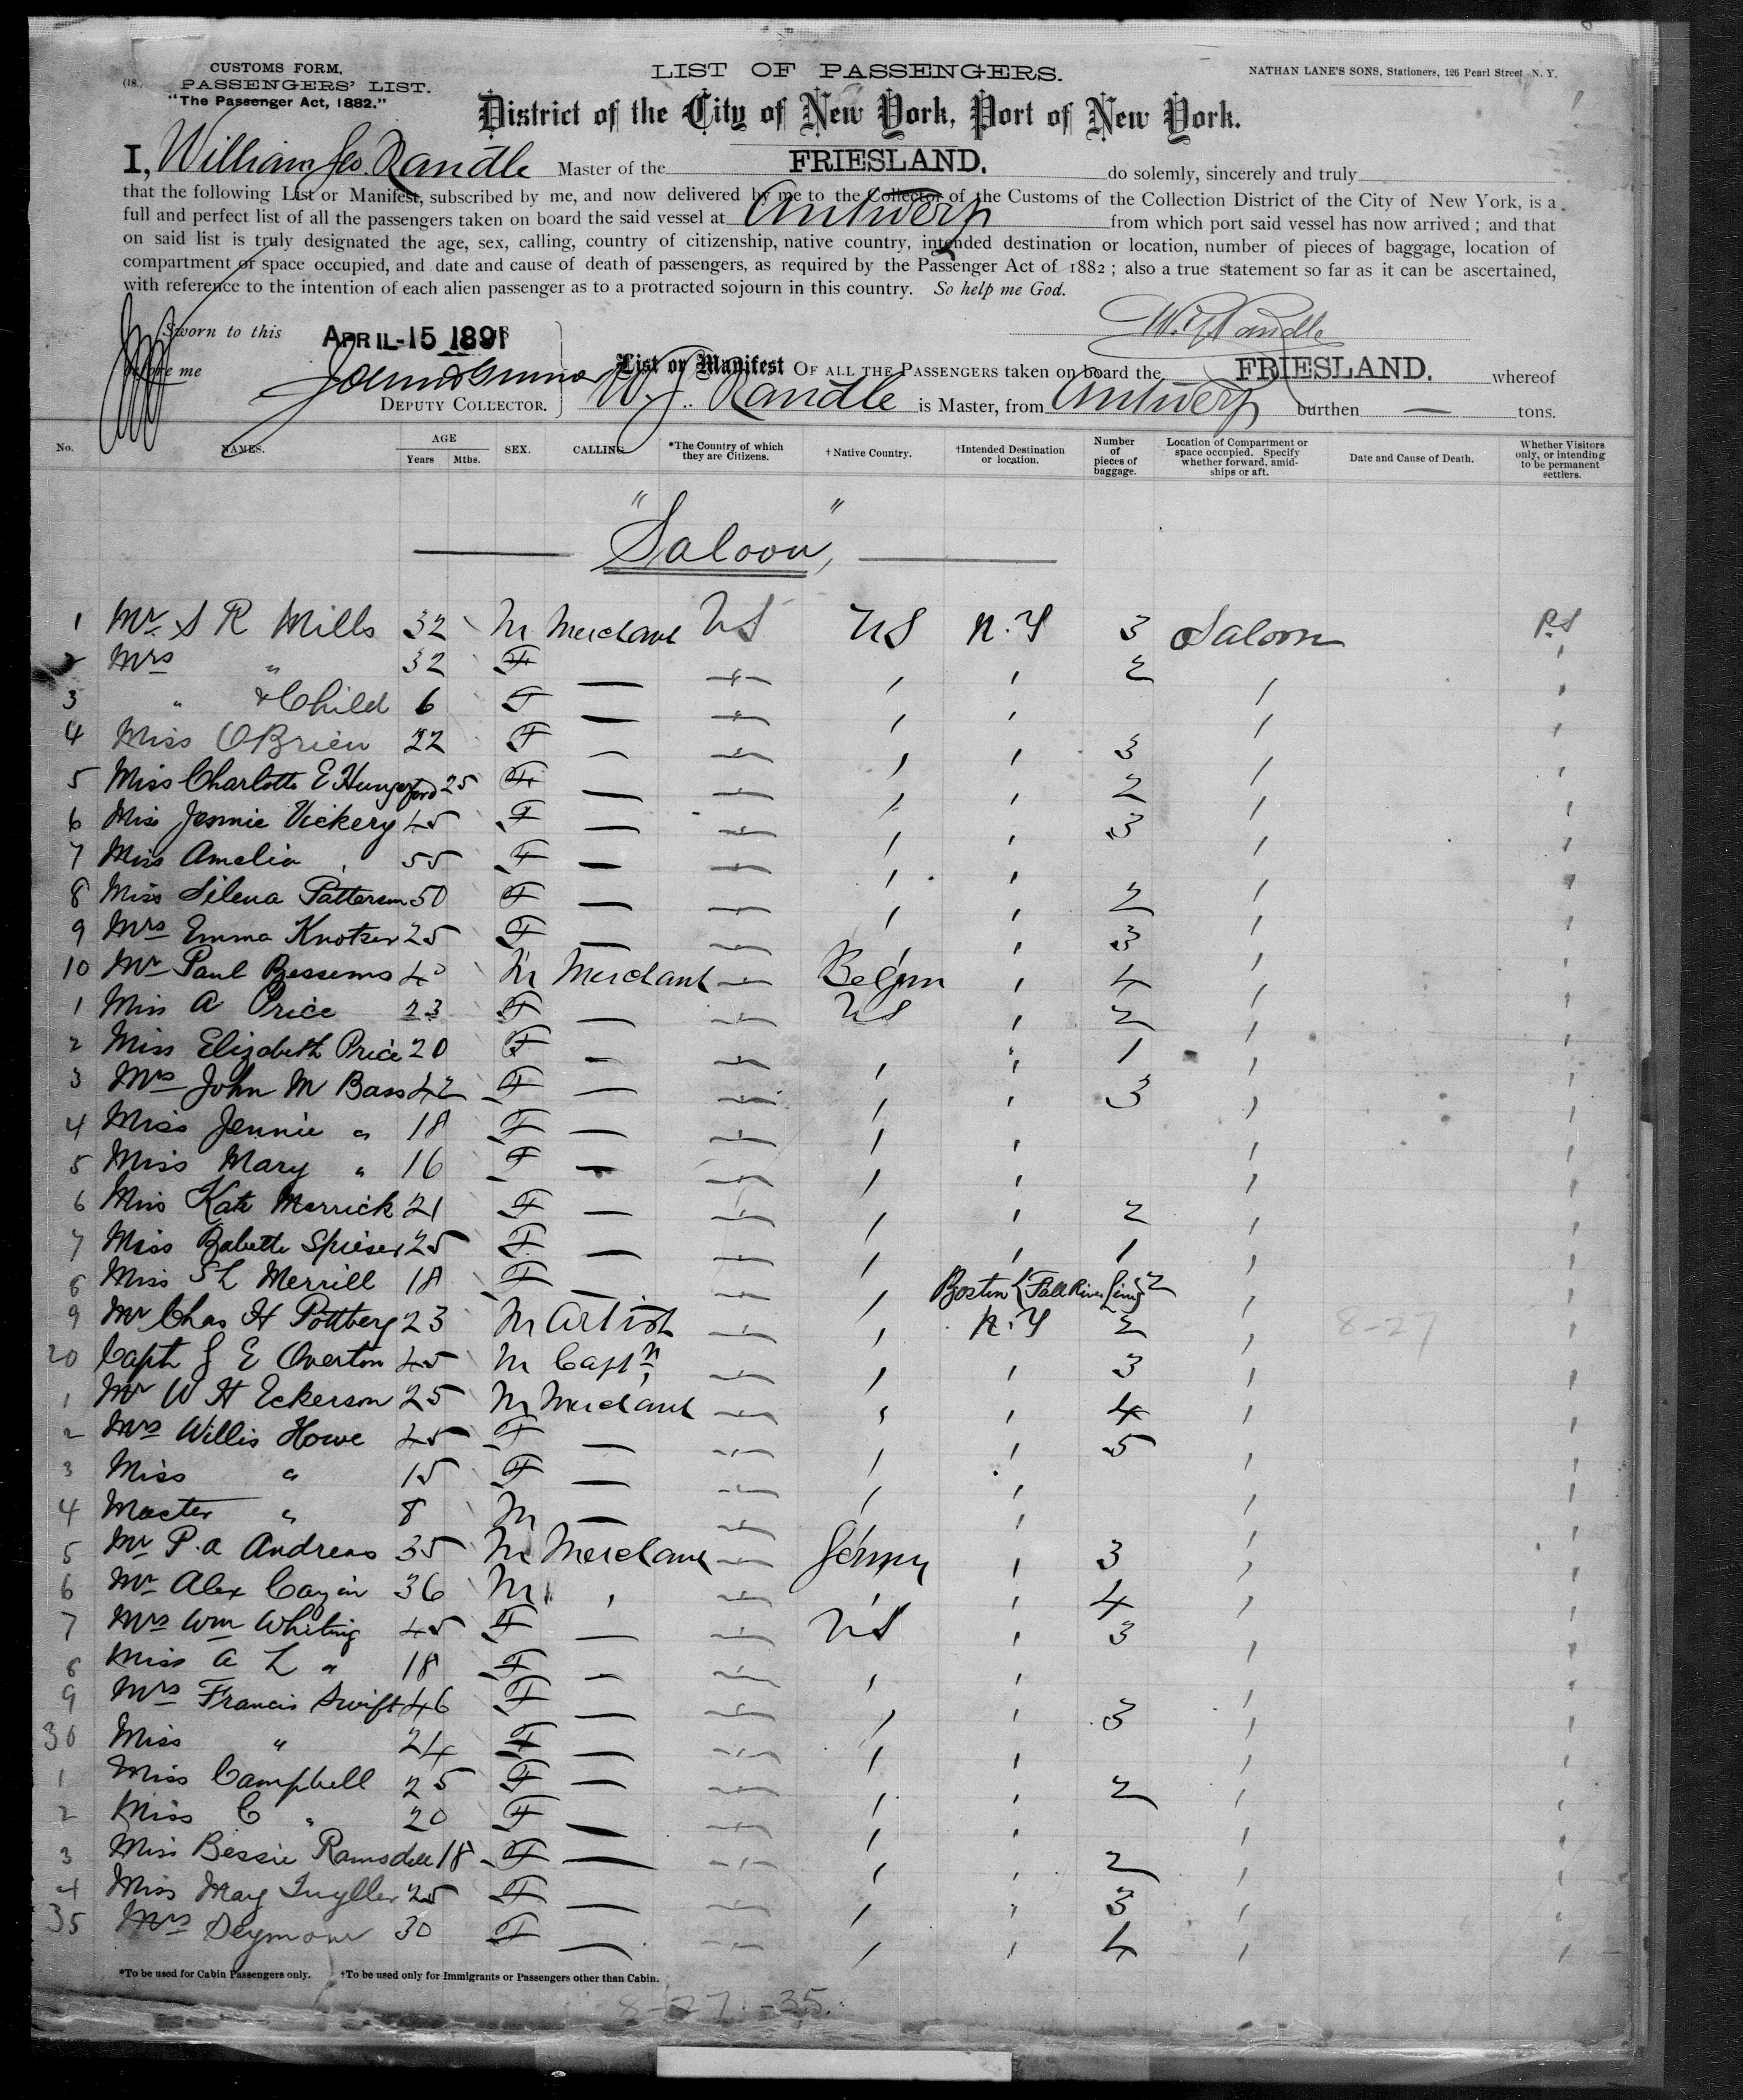 CUSTOMS FORM,
PASSENGERS' LIST.
"The Passenger Act, 1882."
LIST OF PASSENGERS.
NATHAN LANE'S SONS, Stationers, 126 Pearl Street N. Y.
District of the City of New York, Port of New York.
I, William Geo. Randle Master of the FRIESLAND. do solemnly, sincerely and truly
that the following List or Manifest, subscribed by me, and now delivered by me to the Collector of the Customs of the Collection District of the City of New York, is a
full and perfect list of all the passengers taken on board the said vessel at Antwerp from which port said vessel has now arrived; and that
on said list is truly designated the age, sex, calling, country of citizenship, native country, intended destination or location, number of pieces of baggage, location of
compartment or space occupied, and date and cause of death of passengers, as required by the Passenger Act of 1882; also a true statement so far as it can be ascertained,
with reference to the intention of each alien passenger as to a protracted sojourn in this country. So help me God.
Sworn to this APRIL-15 1891 W. G. Randle
before me
List or Manifest OF ALL THE PASSENGERS taken on board the FRIESLAND. whereof
DEPUTY COLLECTOR. W. G. Randle is Master, from Antwerp burthen — tons.
No. NAMES. AGE Years Mths. SEX. CALLING *The Country of which they are Citizens. †Native Country. †Intended Destination or location. Number of pieces of baggage. Location of Compartment or space occupied. Specify whether forward, amidships or aft. Date and Cause of Death. Whether Visitors only, or intending to be permanent settlers.
"Saloon"
1 Mr S R Mills 32 M Merchant US US N.Y 3 Saloon P.S
2 Mrs " 32 F — " ' ' 2 '
3 " & Child 6 F — " ' ' ' '
4 Miss OBrien 22 F — " ' ' 3 ' '
5 Miss Charlotte E Hungerford 25 F — " ' ' 2 ' '
6 Miss Jennie Vickery 45 F — " ' ' 3 ' '
7 Miss Amelia ' 55 F — " ' ' ' '
8 Miss Silena Patterson 50 F — " ' ' 2 ' '
9 Mrs Emma Knotser 25 F — " ' ' 3 ' '
10 Mr Paul Bessems 40 M Merchant " Belgm ' 4 ' '
1 Miss A Price 23 F — " US ' 2 ' '
2 Miss Elizabeth Price 20 F — " ' ' 1 ' '
3 Mrs John M Bass 42 F — " ' ' 3 ' '
4 Miss Jennie " 18 F — " ' ' ' '
5 Miss Mary " 16 F — " ' ' ' '
6 Miss Kate Merrick 21 F — " ' ' 2 ' '
7 Miss Babette Spieser 25 F — " ' ' 1 ' '
8 Miss S L Merrill 18 F — " ' Boston (Fall River Line) 2 ' '
9 Mr Chas H Pottberg 23 M Artist " ' N.Y 2 ' 8-27 '
20 Capt J E Overton 45 M Captn " ' ' 3 ' '
1 Mr W H Eckerson 25 M Merchant " ' ' 4 ' '
2 Mrs Willis Howe 45 F — " ' ' 5 ' '
3 Miss " 15 F — " ' ' ' '
4 Master " 8 M — " ' ' ' '
5 Mr P. A Andreas 35 M Merchant " Germny ' 3 ' '
6 Mr Alex Cazin 36 M ' " ' ' 4 ' '
7 Mrs Wm Whiting 45 F — " US ' 3 ' '
8 Miss A L " 18 F — " ' ' ' '
9 Mrs Francis Swift 46 F — " ' ' 3 ' '
30 Miss " 24 F — " ' ' ' '
1 Miss Campbell 25 F — " ' ' 2 ' '
2 Miss C " 20 F — " ' ' ' '
3 Miss Bessie Ramsdell 18 F — " ' ' 2 ' '
4 Miss May 25 F — " ' ' 3 ' '
35 Mrs Seymour 30 F — " ' ' 4 ' '
*To be used for Cabin Passengers only. †To be used only for Immigrants or Passengers other than Cabin.
8-27-35.